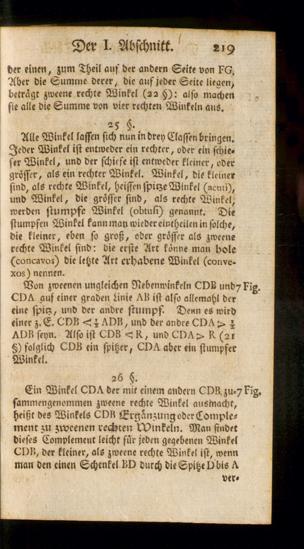 Der I. Abschnitt. 219
der einen, zum Theil auf der andern Seite von FG,
Aber die Summe derer, die auf jeder Seite liegen,
beträgt zweene rechte Winkel (22 §): also machen
sie alle die Summe von vier rechten Winkeln aus.
25 §.
Alle Winkel lassen sich nun in drey Classen bringen.
Jeder Winkel ist entweder ein rechter, oder ein schie-
fer Winkel, und der schiefe ist entweder kleiner, oder
grösser, als ein rechter Winkel. Winkel, die kleiner
sind, als rechte Winkel, heissen spitze Winkel (acuti),
und Winkel, die grösser sind, als rechte Winkel,
werden stumpfe Winkel (obtusi) genannt. Die
stumpfen Winkel kann man wieder eintheilen in solche,
die kleiner, eben so groß, oder grösser als zweene
rechte Winkel sind: die erste Art könne man hole
(concavos) die letzte Art erhabene Winkel (conve-
xos) nennen.
Von zweenen ungleichen Nebenwinkeln CDB und 7 Fig.
CDA auf einer graden Linie AB ist also allemahl der
eine spitz, und der andre stumpf. Denn es wird
einer z. E. CDB < ½ ADB, und der andre CDA > ½
ADB seyn. Also ist CDB < R, und CDA > R (21
§) folglich CDB ein spitzer, CDA aber ein stumpfer
Winkel.
26 §.
Ein Winkel CDA der mit einem andern CDB, zu- 7 Fig.
sammengenommen zweene rechte Winkel ausmacht,
heißt des Winkels CDB Ergänzung oder Comple-
ment zu zweenen rechten Winkeln. Man findet
dieses Complement leicht für jeden gegebenen Winkel
CDB, der kleiner, als zweene rechte Winkel ist, wenn
man den einen Schenkel BD durch die Spitze D bis A
ver-